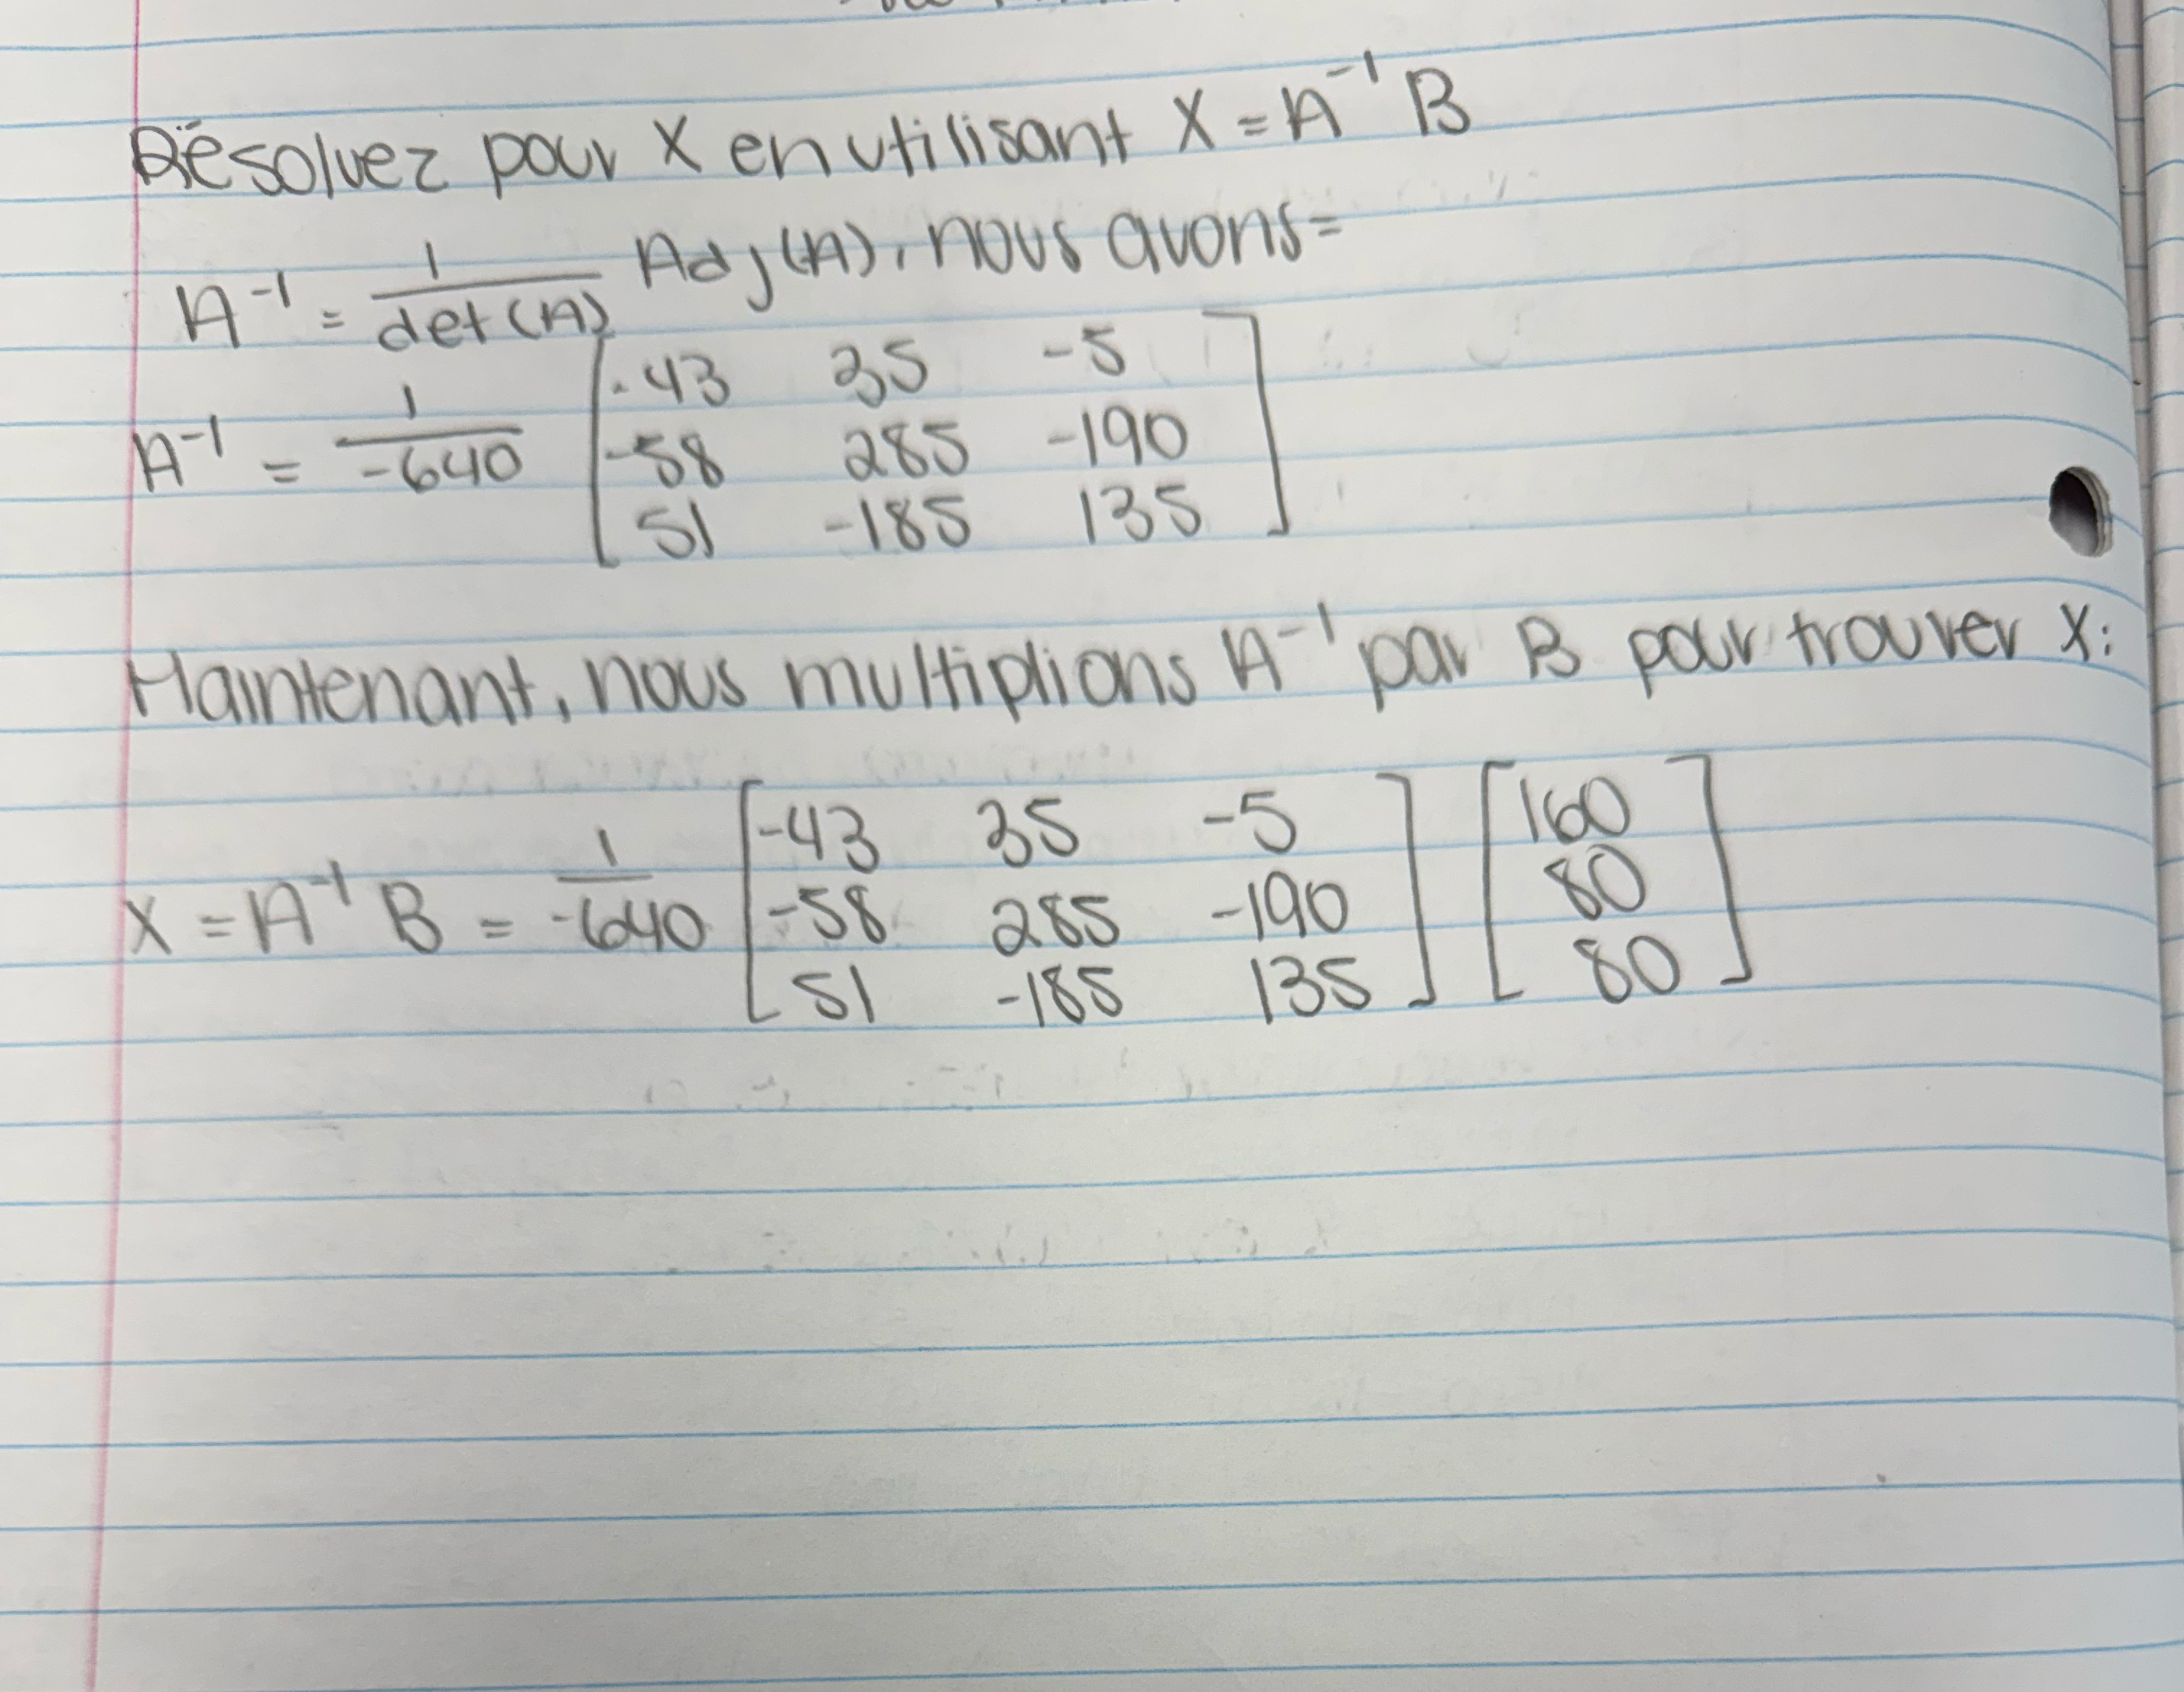 Résolvez pour X en utilisant X = A⁻¹ B
A⁻¹ = 1/det(A) Adj(A), nous avons=
A⁻¹ = 1/-640 [-43 35 -5
-58 285 -190
51 -185 135]
Maintenant, nous multiplions A⁻¹ par B pour trouver X:
X = A⁻¹ B = 1/-640 [-43 35 -5
-58 285 -190
51 -185 135] [160
80
80]